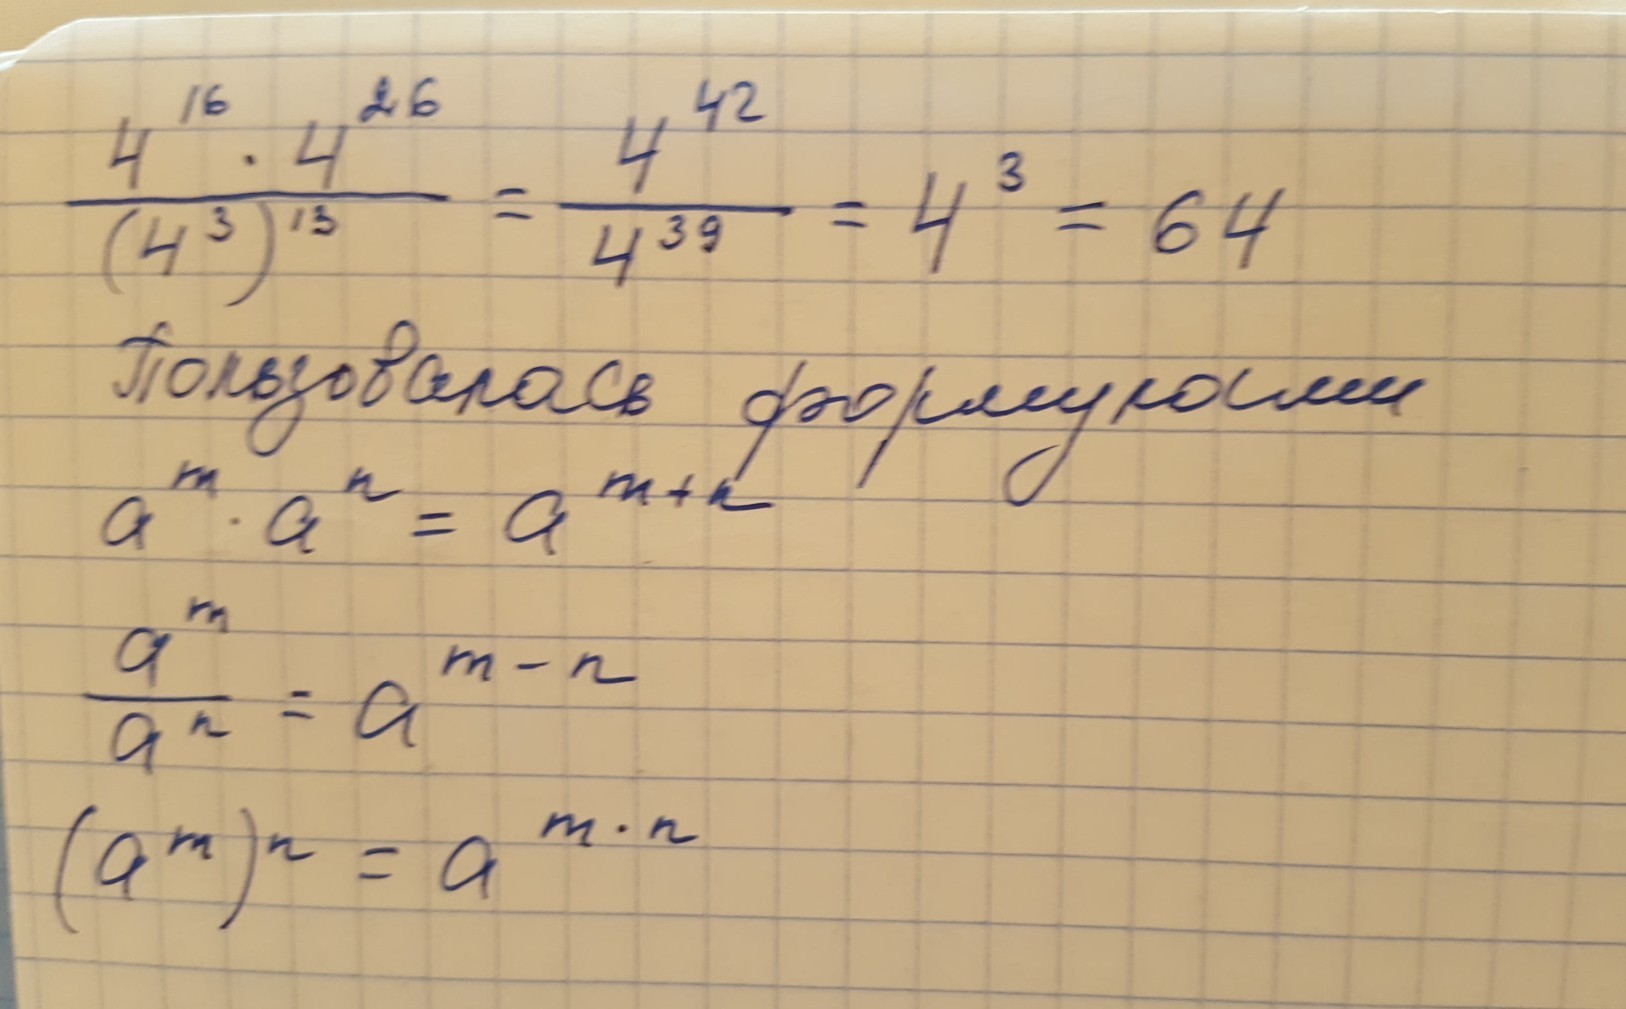 4^16 · 4^26 / (4^3)^13 = 4^42 / 4^39 = 4^3 = 64
Пользовалась формулами
a^m · a^n = a^(m+n)
a^m / a^n = a^(m-n)
(a^m)^n = a^(m·n)